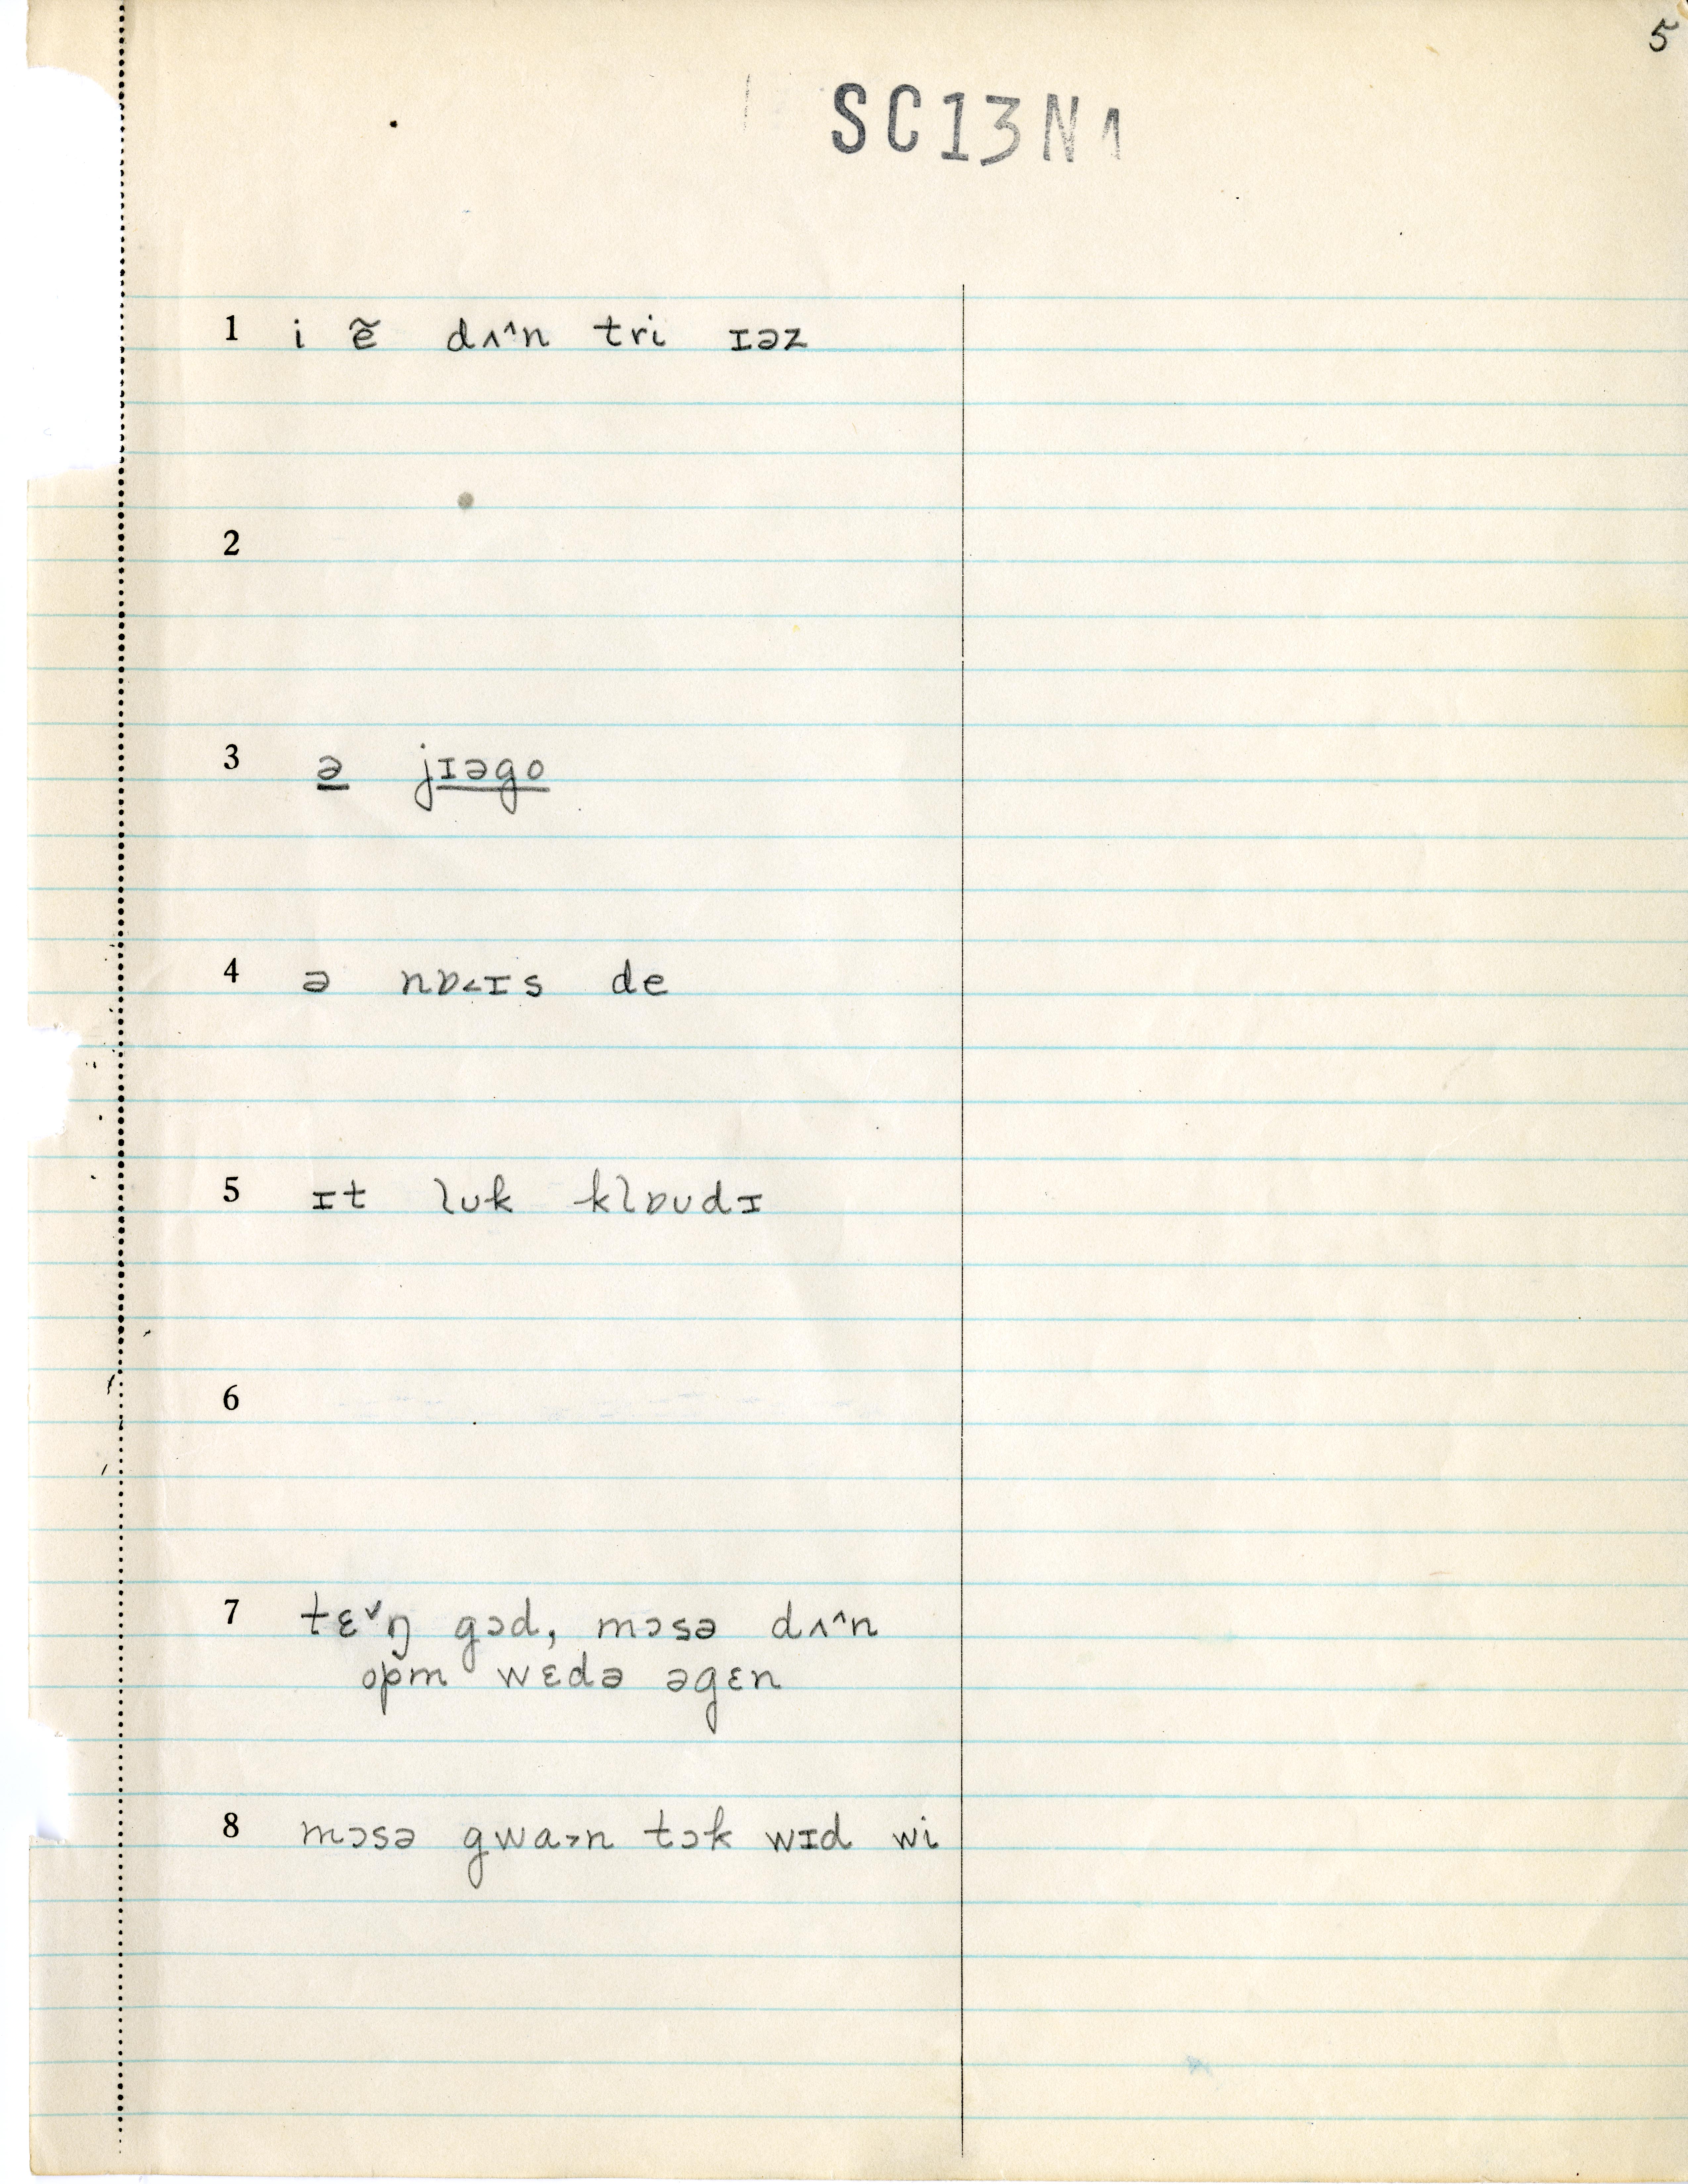 5
SC13N1
1 i ẽ dʌ^n tri ɪəz
2
3 ə jɪəgo
4 ə nɒ<ɪs de
5 ɪt lʊk klɒʊdɪ
6
7 tɛ˅ŋ gɔd, mɔsə dʌ^n
opm wɛdə əgɛn
8 mɔsə gwa>n tɔk wɪd wi